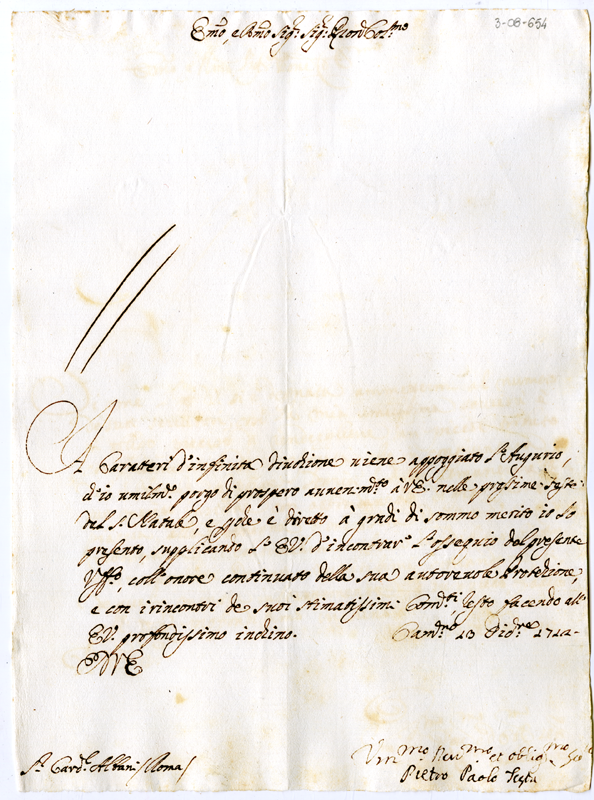 3-08-654
Emo, e Rmo Sig.r Sig.r Pron Col.mo
A Caratteri d'infinita divozione viene appoggiato l'Augurio,
ch'io umilm.te porgo di prospero avvenim.to à V.E. nelle prossime Feste
del S. Natale, e è diretto à gradi di sommo merito io lo
presento, supplicando l'E.V. d'incontrar l'ossequio del presente
Uff.o, coll'onore continuato della sua autorevole Protezione,
e con i rincontri de suoi stimatissimi Com.di, resto facendo all'
E.V. profondissimo inchino. Cam.no 13 Dic.re 1722
D V E
S.r Card.le Albani /Roma/
Um.mo Dev.mo et oblig.mo
Pietro Paolo